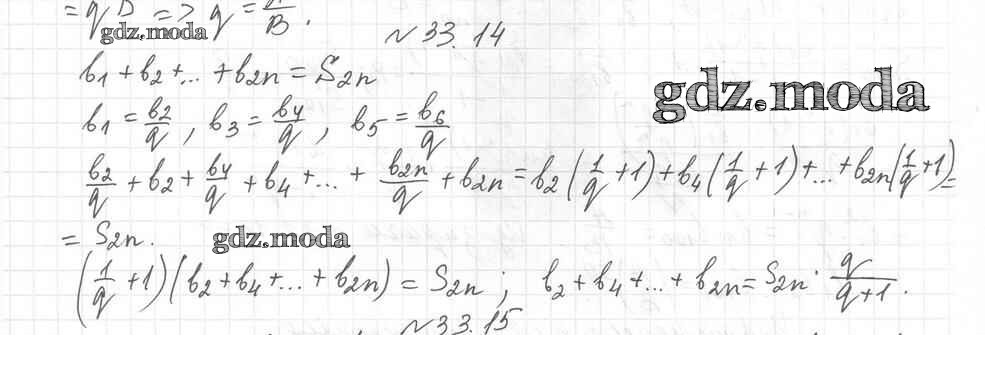 = qB => q = A/B.
gdz.moda
№ 33.14
b₁ + b₂ + ... + b₂ₙ = S₂ₙ
gdz.moda
b₁ = b₂/q, b₃ = b₄/q, b₅ = b₆/q
b₂/q + b₂ + b₄/q + b₄ + ... + b₂ₙ/q + b₂ₙ = b₂(1/q + 1) + b₄(1/q + 1) + ... + b₂ₙ(1/q + 1) =
= S₂ₙ.
gdz.moda
(1/q + 1)(b₂ + b₄ + ... + b₂ₙ) = S₂ₙ; b₂ + b₄ + ... + b₂ₙ = S₂ₙ · q/(q+1).
№ 33.15